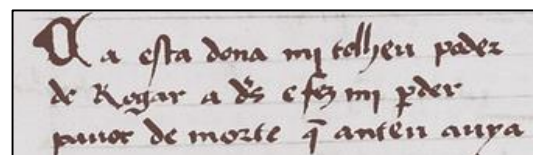 Ca esta dona mi tolheu poder
de Rogar a ds̄ e fez mi p̄der
pavor de morte q̄ anteu avya